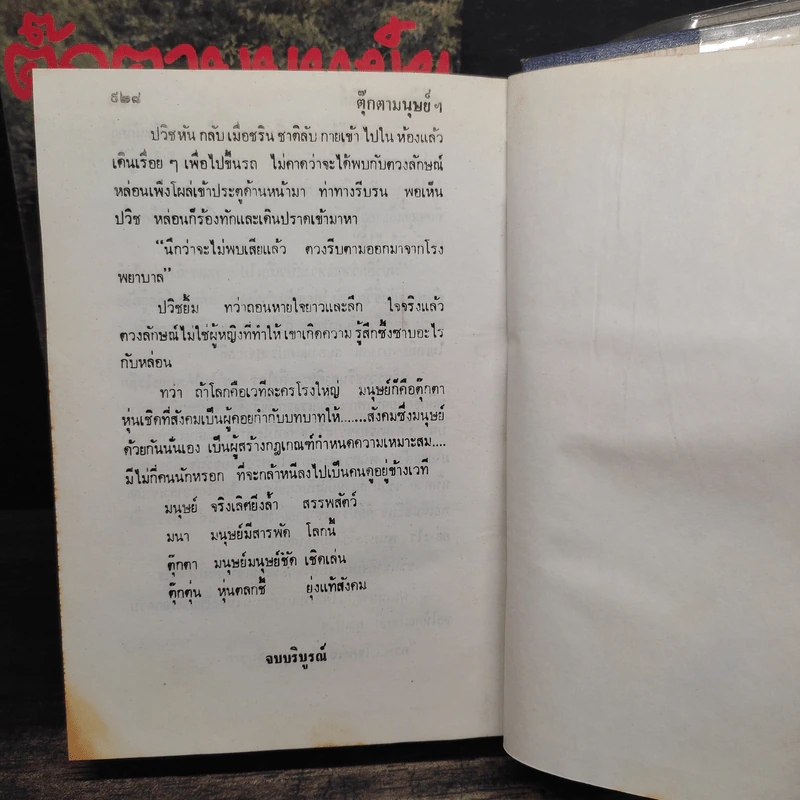 ตุ๊กตามนุษย์
๙๒๘ ตุ๊กตามนุษย์ ๆ
ปวิชหัน กลับ เมื่อชริน ชาติลับ กายเข้า ไปใน ห้องแล้ว
เดินเรื่อย ๆ เพื่อไปขึ้นรถ ไม่คาดว่าจะได้พบกับดวงลักษณ์
หล่อนเพิ่งโผล่เข้าประตูด้านหน้ามา ท่าทางรีบรน พอเห็น
ปวิช หล่อนก็ร้องทักและเดินปราดเข้ามาหา
“นึกว่าจะไม่พบเสียแล้ว ดวงรีบตามออกมาจากโรง
พยาบาล”
ปวิชยิ้ม ทว่าถอนหายใจยาวและลึก ใจจริงแล้ว
ดวงลักษณ์ไม่ใช่ผู้หญิงที่ทำให้ เขาเกิดความ รู้สึกซึ้งซาบอะไร
กับหล่อน
ทว่า ถ้าโลกคือเวทีละครโรงใหญ่ มนุษย์ก็คือตุ๊กตา
หุ่นเชิดที่สังคมเป็นผู้คอยกำกับบทบาทให้.......สังคมซึ่งมนุษย์
ด้วยกันนั่นเอง เป็นผู้สร้างกฎเกณฑ์กำหนดความเหมาะสม....
มีไม่กี่คนนักหรอก ที่จะกล้าหนีลงไปเป็นคนดูอยู่ข้างเวที
มนุษย์ จริงเลิศยิ่งล้ำ สรรพสัตว์
มนา มนุษย์มีสารพัด โลกนี้
ตุ๊กตา มนุษย์มนุษย์ชัด เชิดเล่น
ตุ๊กตุ่น หุ่นตลกชี้ ยุ่งแท้สังคม
จบบริบูรณ์